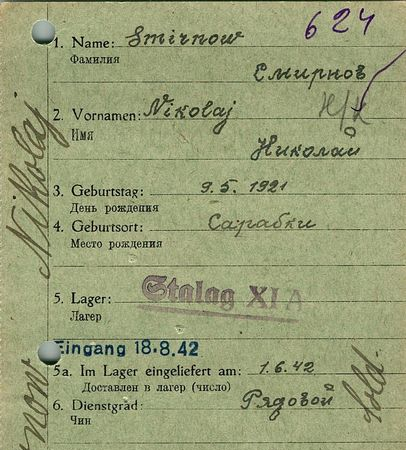 624
1. Name: Smirnow
Фамилия
Смирнов
2. Vornamen: Nikolaj
Имя
Николай
3. Geburtstag: 9.5.1921
День рождения
4. Geburtsort: Сарабки
Место рождения
5. Lager: Stalag XI A
Лагерь
Eingang 18.8.42
5a. Im Lager eingeliefert am: 1.6.42
Доставлен в лагерь (число)
6. Dienstgrad: Рядовой
Чин
Nikolaj
now
Sold.